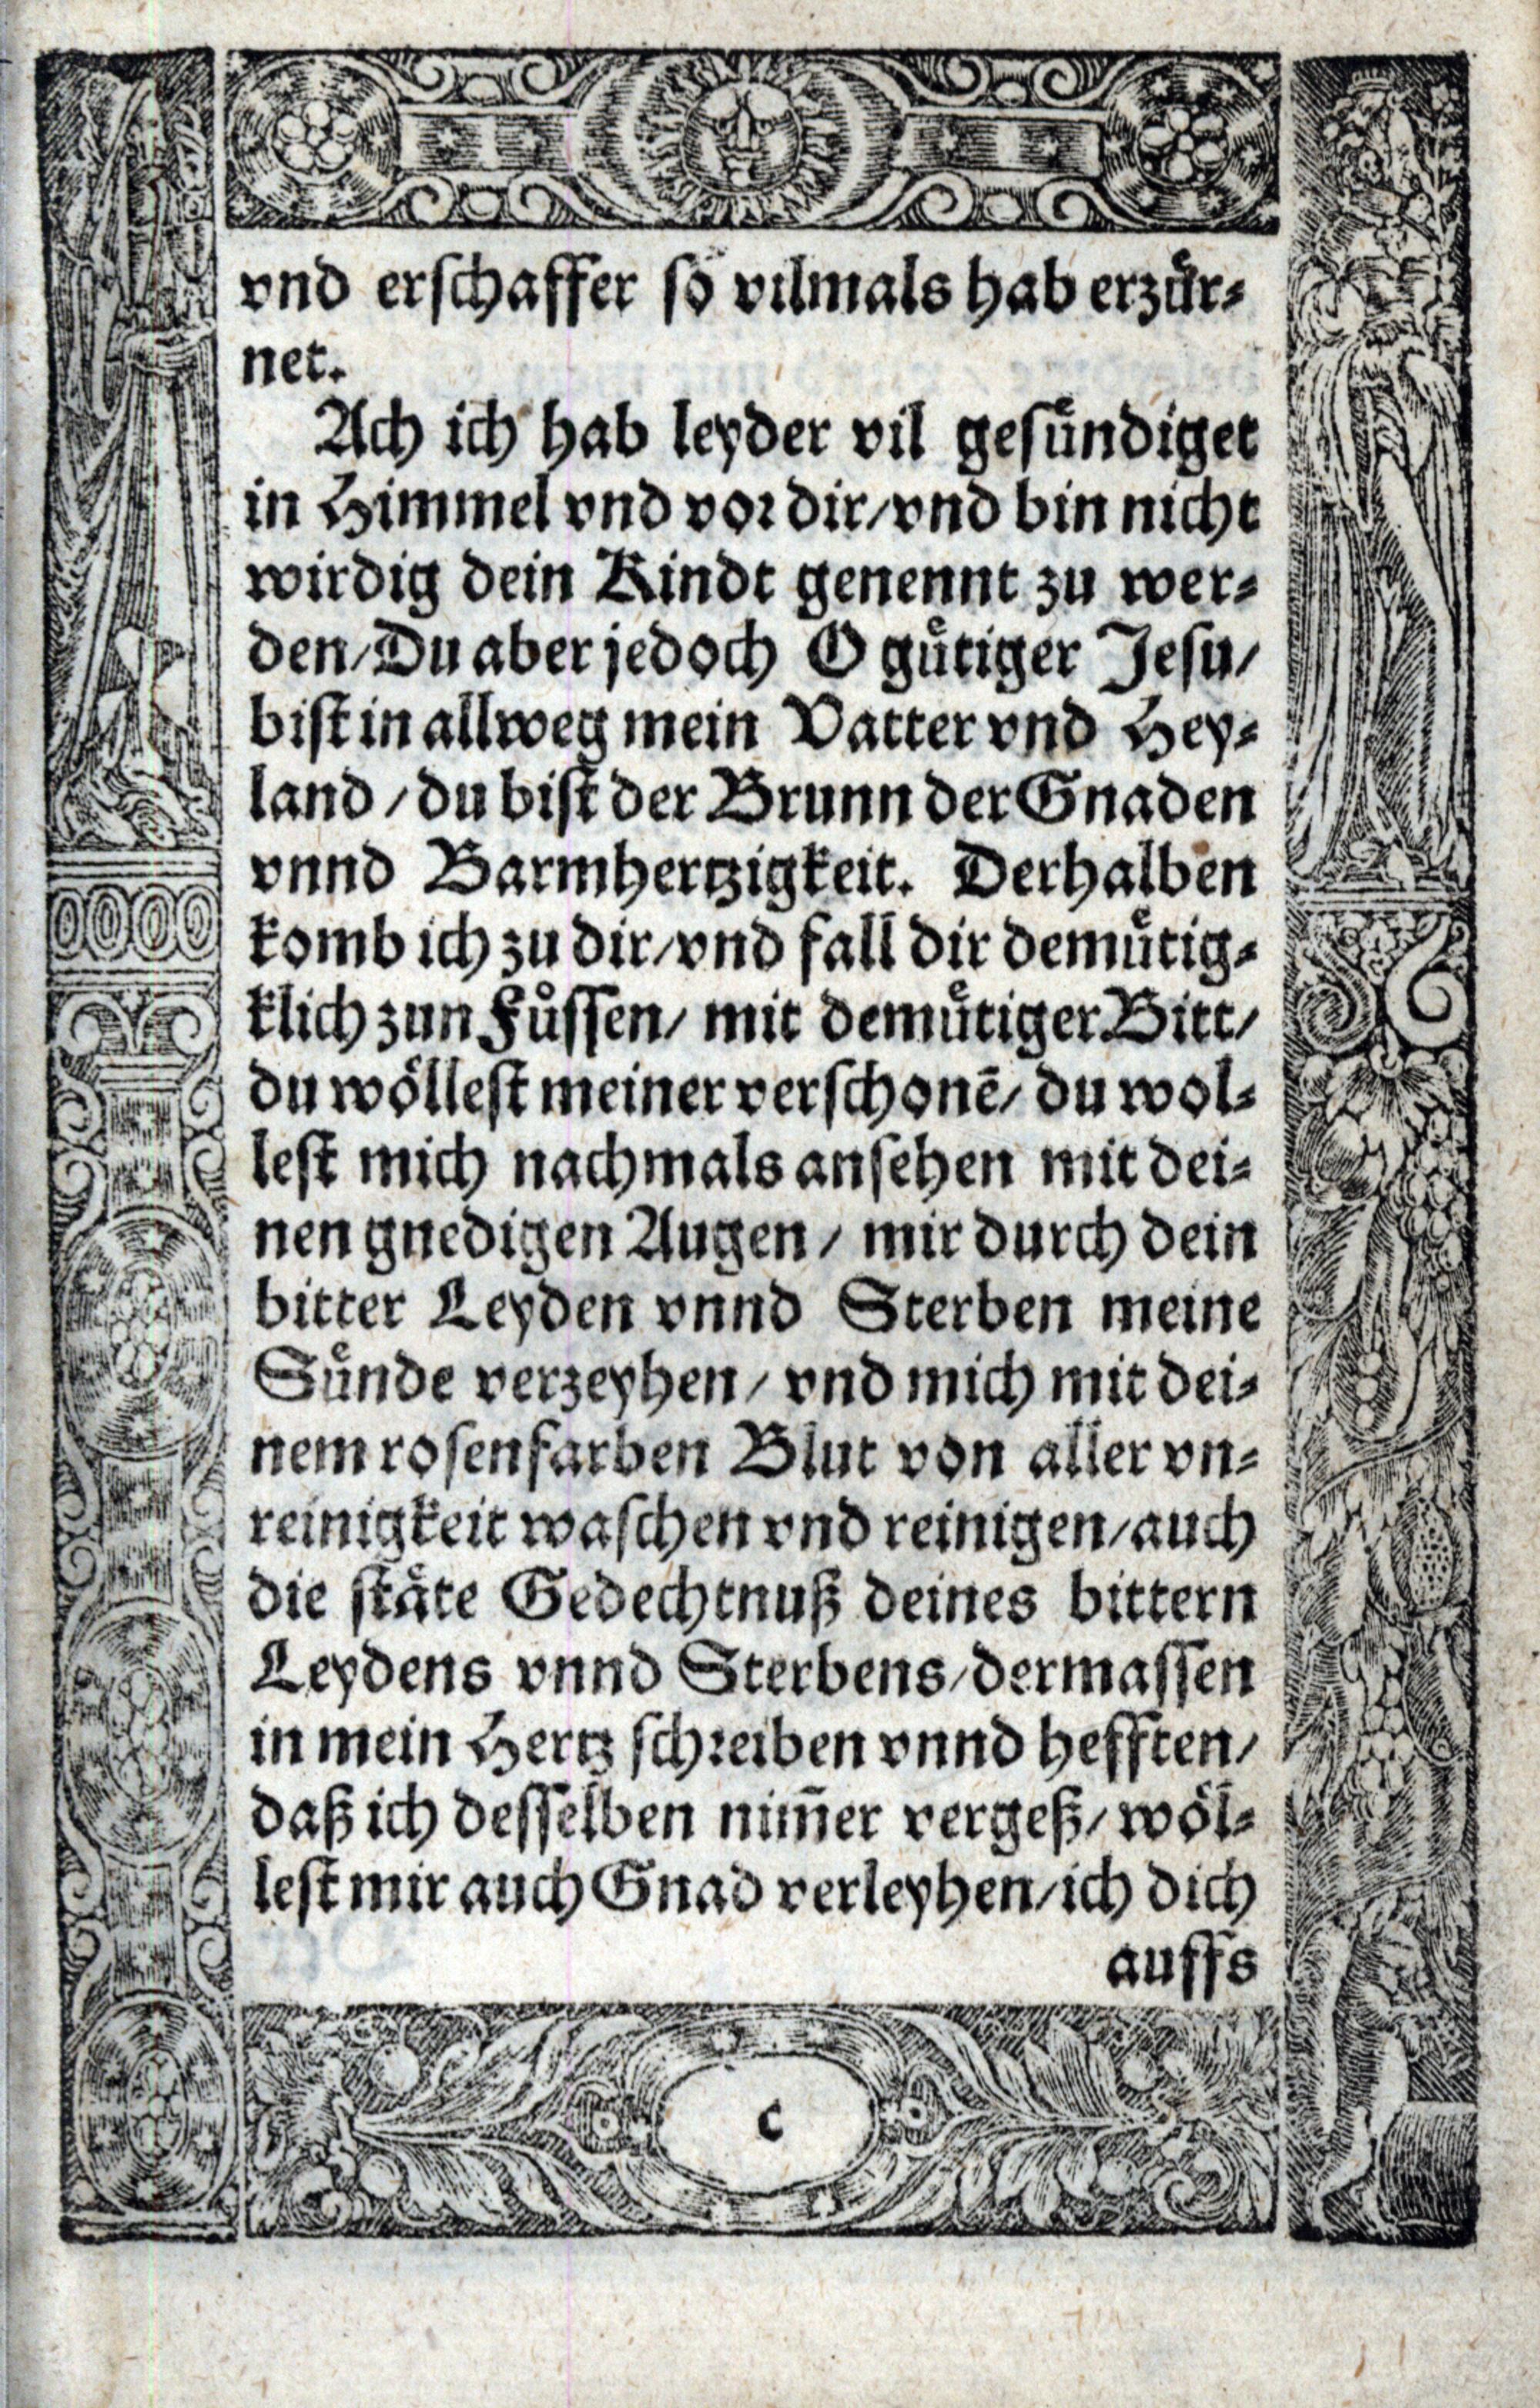 vnd erschaffer so vilmals hab erzuͤr⸗
net.
Ach ich hab leyder vil gesuͤndiget
in Himmel vnd vor dir/vnd bin nicht
wirdig dein Kindt genennt zu wer⸗
den/Du aber jedoch O guͤtiger Jesu/
bist in allweg mein Vatter vnd Hey⸗
land/du bist der Brunn der Gnaden
vnnd Barmhertzigkeit. Derhalben
komb ich zu dir/vnd fall dir demuͤtig⸗
klich zun Fuͤssen/ mit demuͤtiger Bitt/
du woͤllest meiner verschonē/ du wol⸗
lest mich nachmals ansehen mit dei⸗
nen gnedigen Augen/ mir durch dein
bitter Leyden vnnd Sterben meine
Suͤnde verzeyhen/ vnd mich mit dei⸗
nem rosenfarben Blut von aller vn⸗
reinigkeit waschen vnd reinigen/auch
die staͤte Gedechtnuß deines bittern
Leydens vnnd Sterbens/dermassen
in mein Hertz schreiben vnnd hefften/
daß ich desselben nim̄er vergeß/ woͤl⸗
lest mir auch Gnad verleyhen/ich dich
auffs
c